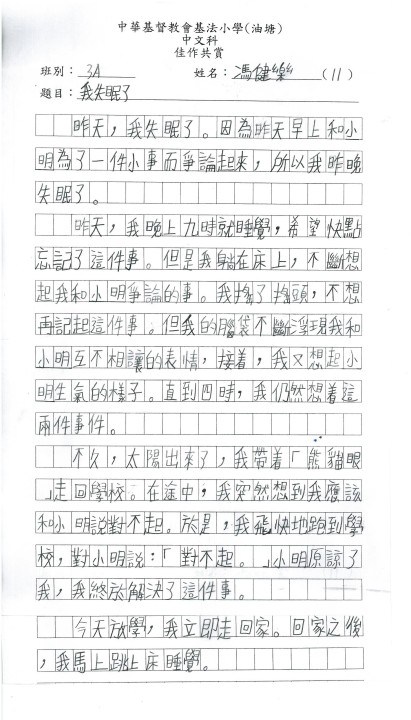 中華基督教會基法小學(油塘)
中文科
佳作共賞
班別：3A 姓名：馮健樂(11)
題目：我失眠了
昨天，我失眠了。因為昨天早上和小
明為了一件小事而爭論起來，所以我昨晚
失眠了。
昨天，我晚上九時就睡覺，希望快點
忘記了這件事。但是我躺在床上，不斷想
起我和小明爭論的事。我搖了搖頭，不想
再記起這件事。但我的腦袋不斷浮現我和
小明互不相讓的表情，接着，我又想起小
明生氣的樣子。直到四時，我仍然想着這
兩件事件。
不久，太陽出來了，我帶着「熊貓眼
」走回學校。在途中，我突然想到我應該
和小明說對不起。於是，我飛快地跑到學
校，對小明說：「對不起。」小明原諒了
我，我終於解決了這件事。
今天放學，我立即走回家。回家之後
，我馬上跳上床睡覺。